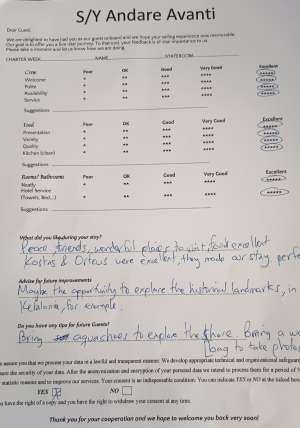 S/Y Andare Avanti
Dear Guest,
We are delighted to have had you as our guest onboard and we hope your sailing experience was memorable.
Our goal is to offer you a five-star journey. To that end, your feedback is of vital importance to us.
Please take a moment and let us know how we are doing.
CHARTER WEEK NAME STATEROOM
Crew Poor OK Good Very Good Excellent
Welcome * ** *** **** *****
Polite * ** *** **** *****
Availability * ** *** **** *****
Service * ** *** **** *****
Suggestions
Food Poor OK Good Very Good Excellent
Presentation * ** *** **** *****
Variety * ** *** **** *****
Quality * ** *** **** *****
Kitchen (clean) * ** *** **** *****
Suggestions
Rooms/ Bathrooms Poor OK Good Very Good Excellent
Neatly * ** *** **** *****
Hotel Service
(Towels, Bed,..) * ** *** **** *****
Suggestions
What did you like during your stay?
Peace, friends, wonderful places to visit, food excellent
Kostas & were excellent, they made our stay perfe
Advise for future improvements
Maybe the opportunity to explore the historical landmarks, in
for example.
Do you have any tips for future Guests?
Bring aquashoes to explore the shore. Bring a wa
bag to take photos
assure you that we process your data in a lawful and transparent manner. We develop appropriate technical and organizational safeguard
sure the security of your data. After the anonymization and encryption of your personal data we intend to process them for a period of 5
statistic reasons and to improve our services. Your consent is an indispensable condition. You can indicate YES or NO at the ticked boxes
YES NO
u have the right of a copy and you have the right to withdraw your consent at any time.
Thank you for your cooperation and we hope to welcome you back very soon!